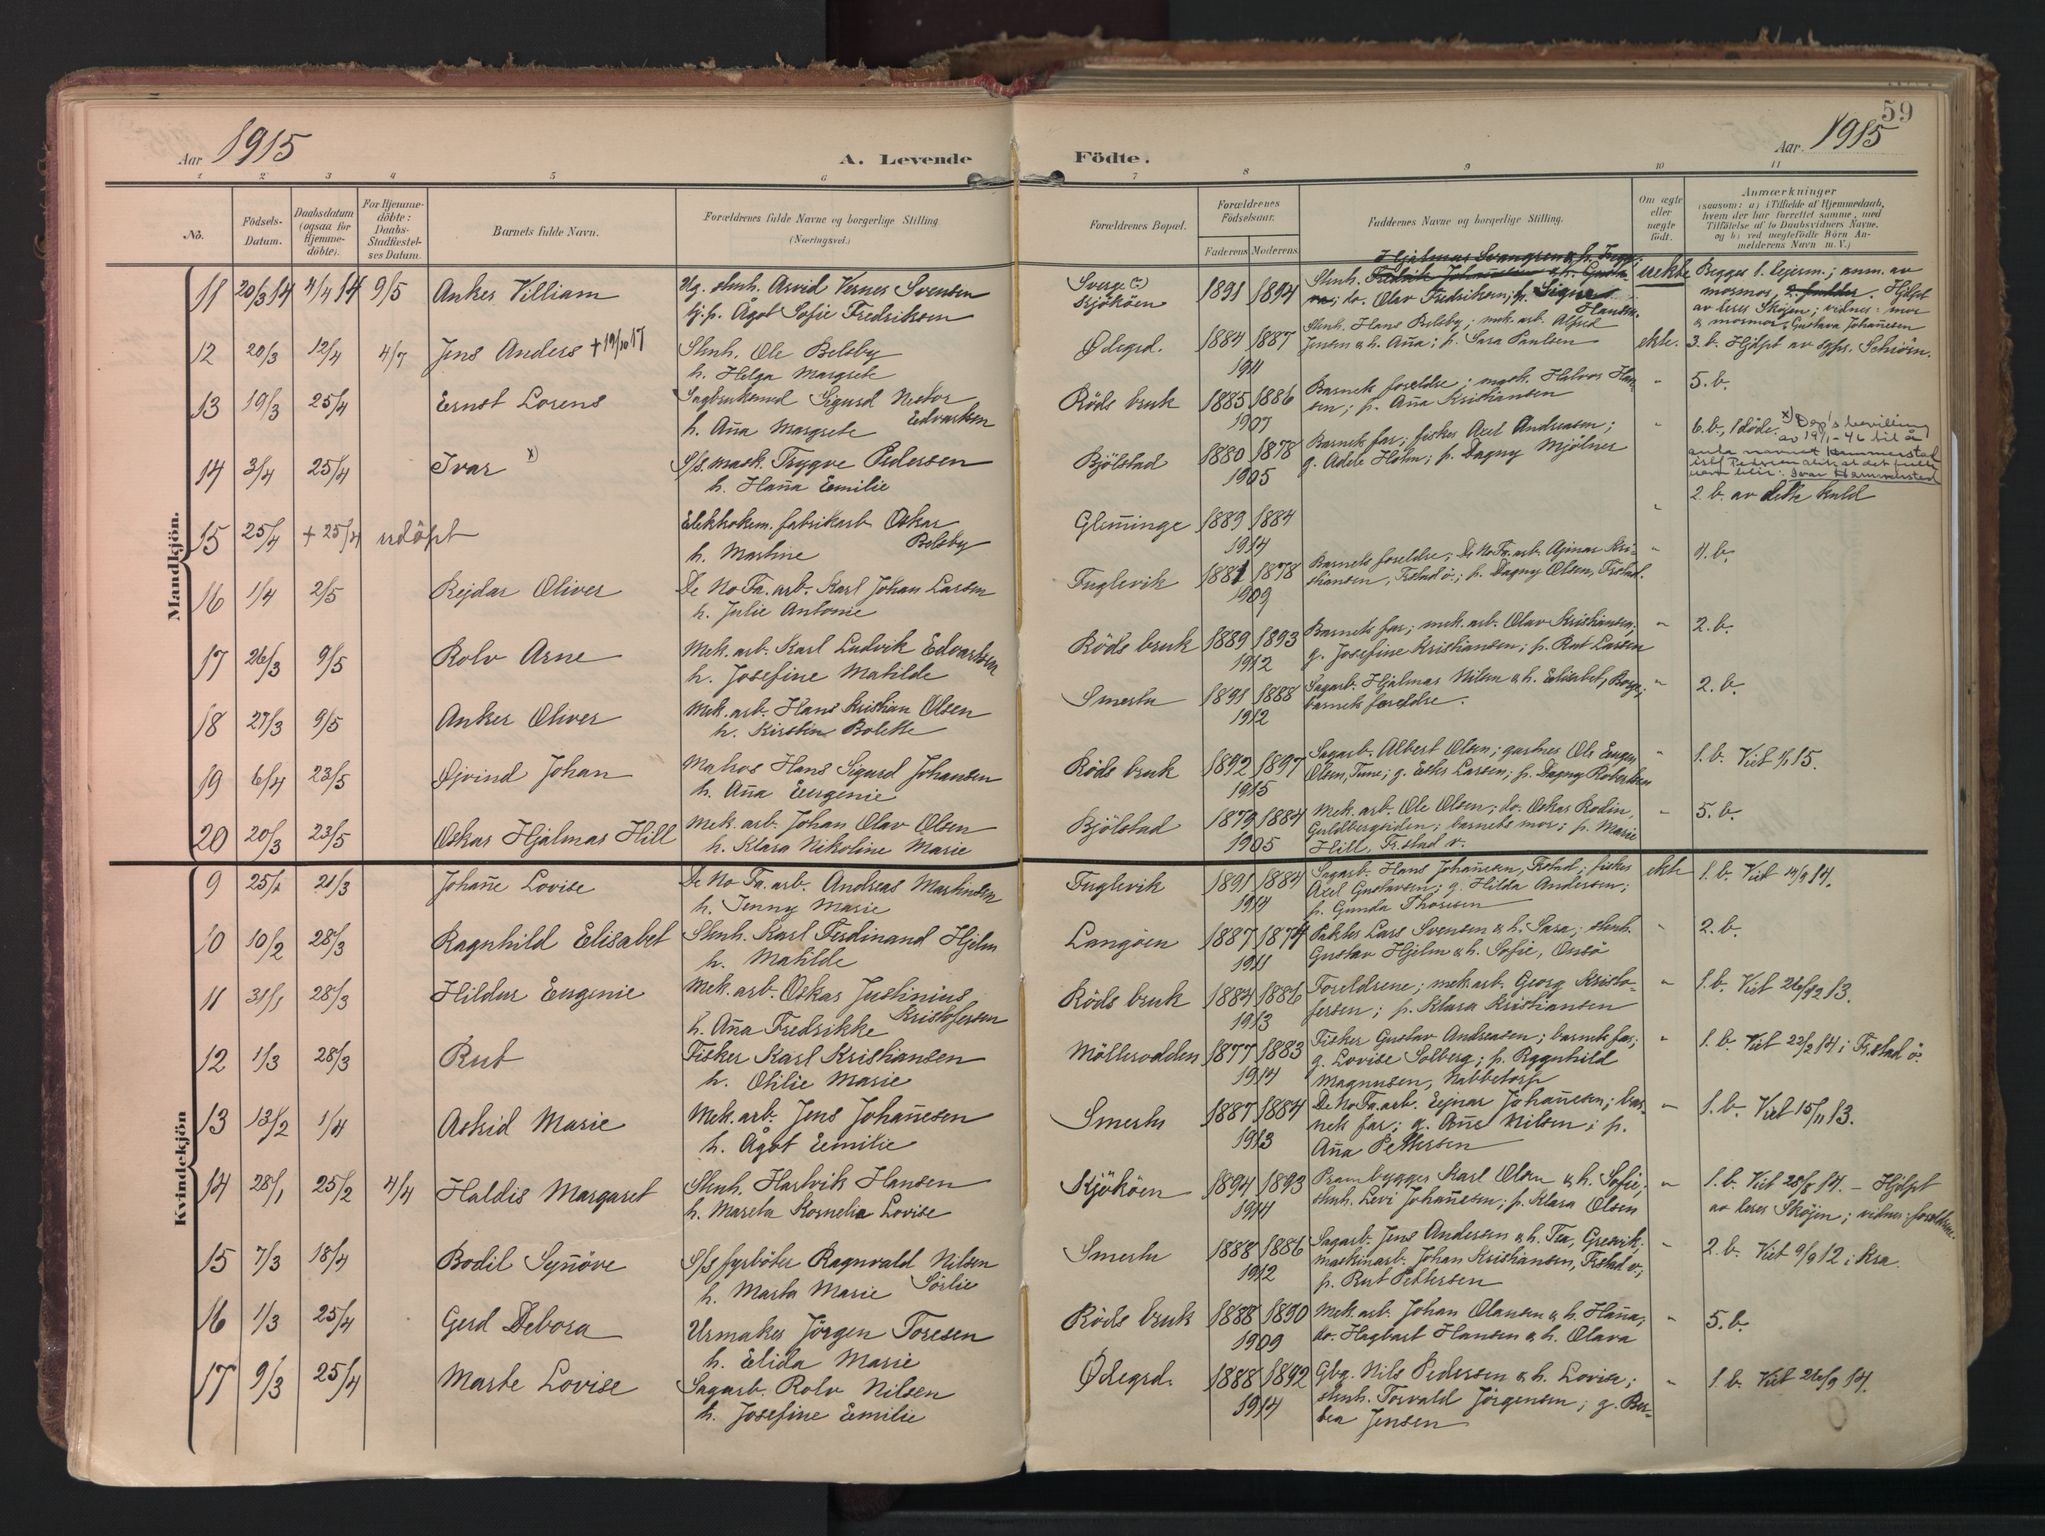 59
Aar 1915
A. Levende Födte.
Aar. 1915
1 2 3 4 5 6 7 8 9 10 11
No.
Födsels-Datum.
Daabsdatum (ogsaa for Hjemme-döbte).
For Hjemme-döbte: Daabs-Stadfæstel-ses Datum.
Barnets fulde Navn.
Forældrenes fulde Navne og borgerlige Stilling. (Næringsvei.)
Forældrenes Bopæl.
Forældrenes Födselsaar.
Faderens Moderens
Faddernes Navne og borgerlige Stilling.
Om ægte eller uægte födt.
Anmærkninger (saasom: a) i Tilfælde af Hjemmedaab, hvem der har forrettet samme, med Tilföielse af to Daabsvidners Navne. og b) ved uægtefödte Börn An-melderens Navn m. V.)
Mandkjön.
11 20/3 14 4/4 14 9/5 Anker Villiam
Ug. stenh. Arvid Verner Svensen
tj. p. Ågot Sofie Fredriksen
Sverge
Kjököen 1891 1894
uekte
12 20/3 12/4 4/7 Jens Anders + 19/10 17
Stenh. Ole Belsby
h. Helga Margrete
Ødegrd. 1884 1887
1911
Stenh. Hans Belsby; mek. arb. Alfred
Jensen & h. Aña; p. Sara Paulsen
ekte. 3. b. Hjdpt av
13 19/3 25/4 Ernst Lorens
Sagbruksmd Sigurd Nestor
Edvardsen
h. Aña Margrete
Röds bruk 1885 1886
1907
Barnets foreldre; mask. Halvor Han-
sen; p. Aña Kristiansen
" 5. b.
14 3/4 25/4 Ivar x)
S/s. mask. Trygve Pedersen
h. Haña Emilie
Bjölstad 1880 1878
1905
Barnets far; fisker Axel Andreasen;
g. Adele Holm; p. Dagny Mjölner
" 6. b., 1 döde.
x) Dep's bevilling
av 19/1-46 til å
anta navnet Hammerstad
15 25/4 + 25/4 udöpt
Elektrokem. fabrikarb Oskar
Belsby
h. Martine
Gleminge 1889 1884
1914
" 2 b. av dette kuld
16 1/4 2/5 Rejdar Oliver
De No Fa. arb. Karl Johan Larsen
h. Julie Antonie
Fuglevik 1881 1878
1909
Barnets foreldre; De No Fa. arb. Ajmar Kri-
stiansen, Frstad ö.; p. Dagny Olsen, Frstad.
" 4. b.
17 26/3 9/5 Rolv Arne
Mek. arb. Karl Ludvik Edvardsen
h. Josefine Matilde
Röds bruk 1889 1893
1912
Barnets far; mek. arb. Olav Kristiansen;
g. Josefine Kristiansen; p. Rut Larsen
" 2. b.
18 27/3 9/5 Anker Oliver
Mek. arb. Hans Kristian Olsen
h. Kirstin Bolette
Smertu 1891 1888
1912
Sagarb. Hjalmar Nilsen & h. Elisabet, Borge;
barnets foreldre.
" 2. b.
19 6/4 23/5 Øjvind Johan
Matros Hans Sigurd Johansen
h. Aña Eugenie
Röds bruk 1892 1897
1915
Sagarb. Albert Olsen; gartner Ole Eugen
Olsen, Tune; g. Ester Larsen; p. Dagny Robertsen
" 1. b. Viet 1/1 15.
20 20/3 23/5 Oskar Hjalmar Hill
Mek. arb. Johan Olav Olsen
h. Klara Nikoline Marie
Bjölstad 1879 1884
1905
Mek. arb. Ole Olsen; do. Oskar Rodin,
Guldbergsiden; barnets mor; p. Marie
Hill, Fr.stad v.
" 5. b.
Kvindekjön
9 25/1 21/3 Johañe Lovise
De No Fa. arb. Andreas Martinsen
h. Jenny Marie
Fuglevik 1891 1884
1914
Sagarb. Hans Johañesen, Frstad; fisker
Axel Gustavsen; g. Hilda Andersen;
p. Gunda Thoresen
ekte 1. b. Viet 14/9 14.
10 10/2 28/3 Ragnhild Elisabet
Stenh. Karl Ferdinand Hjelm
h. Matilde
Langöen 1887 1874
1911
Pakker Lars Svensen & h. Sara; stenh.
Gustav Hjelm & h. Sofie, Onsö
" 2. b.
11 31/1 28/3 Hildur Eugenie
Mek. arb. Oskar Justinius
Kristofersen
h. Aña Fredrikke
Röds bruk 1884 1886
1913
Foreldrene; mek. arb. Georg Kristo-
fersen; p. Klara Kristiansen
" 1. b. Viet 26/12 13.
12 1/3 28/3 Rut
Fisker Karl Kristiansen
h. Otilie Marie
Möllerodden 1877 1883
1914
Fisker Gustav Andreasen; barnets far;
g. Lovise Solberg; p. Ragnhild
Magnusen, Nabbetorp
" 1. b. Viet 22/2 14 i Fr.stad ö.
13 13/2 1/4 Astrid Marie
Mek. arb. Jens Johañesen
h. Ågot Emilie
Smertu 1887 1884
1913
De No Fa. arb. Ejnar Johañesen; bar-
nets far; g. Añe Nilsen; p.
Aña Pettersen
" 1. b. Viet 15/11 13.
14 28/1 25/2 4/4 Haldis Margaret
Stenh. Hartvik Hansen
h. Mareta Kornelia Lovise
Kjököen 1894 1893
1914
Prambygger Karl Olsen & h. Sofie;
stenh. Levi Johañesen; p. Klara Olsen
" 1. b. Viet 28/8 14. – Hjdpt
av lærer Skøjen; vidner: foreldrene.
15 7/3 18/4 Bodil Syñöve
S/s fyrböter Ragnvald Nilsen
Sörlie
h. Marta Marie
Smertu 1888 1886
1912
Sagarb. Jens Andersen & h. Tea, Gresvik;
maskinarb. Johan Kristiansen, Frstad v.;
p. Rut Pettersen
" 2. b. Viet 9/9 12 i Kra.
16 1/3 25/4 Gerd Debora
Urmaker Jörgen Toresen
h. Elida Marie
Röds bruk 1888 1890
1909
Mek. arb. Johan Olausen & h. Haña;
do. Hagbart Hansen & h. Olava
" 5. b.
17 9/3 25/4 Marte Lovise
Sagarb. Rolv Nilsen
h. Josefine Emilie
Ødegrd. 1888 1892
1914
Gbg. Nils Pedersen & h. Lovise;
stenh. Torvald Jörgensen; g. Ber-
tea Jensen
" 1. b. Viet 26/9 14.